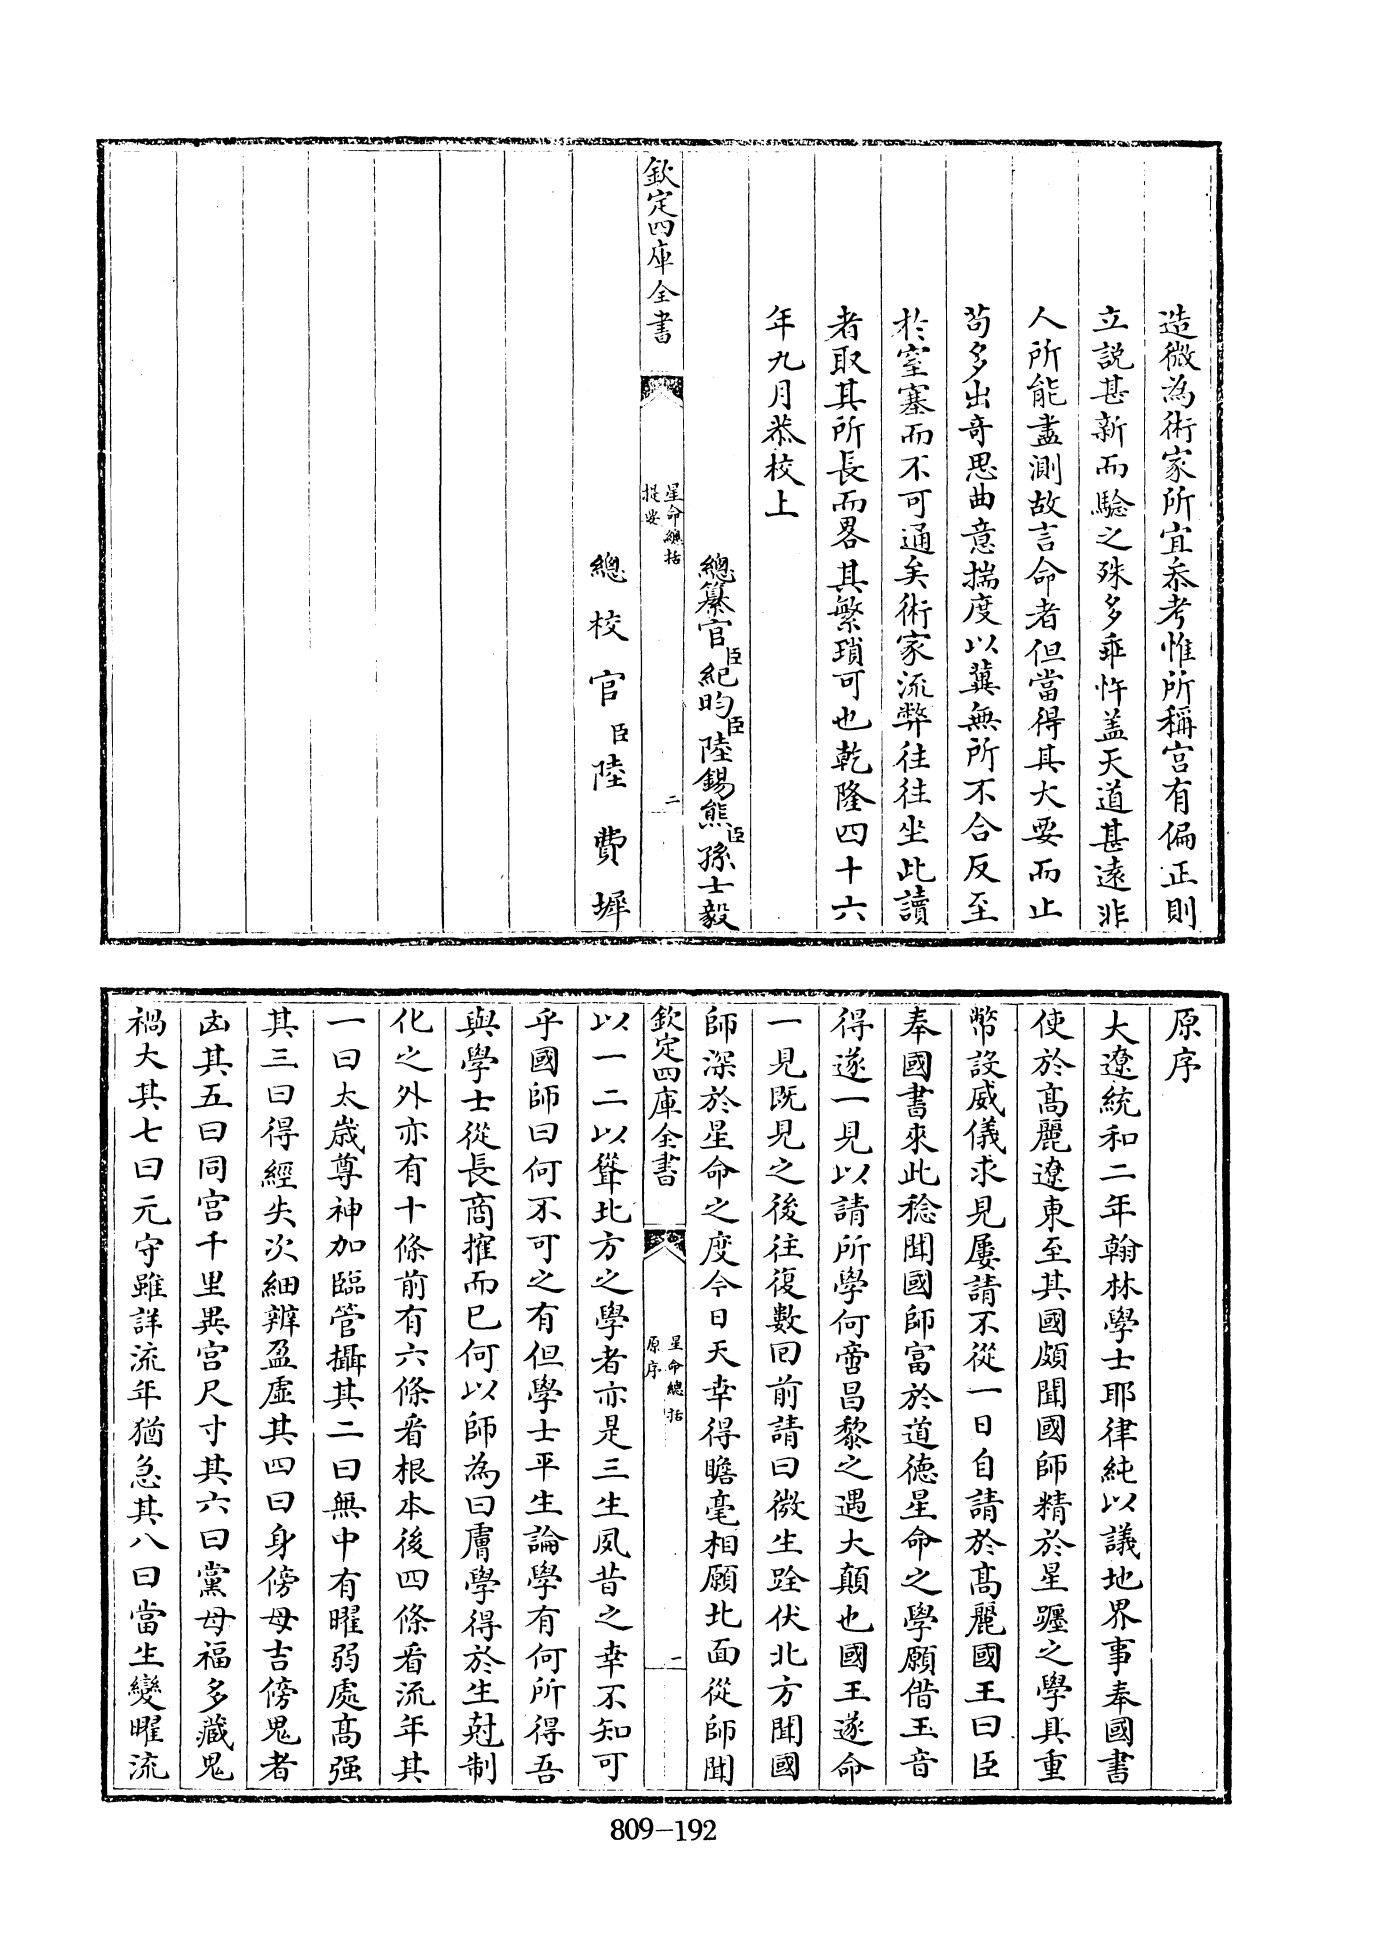 造微為術家所宜叅考惟所稱宫有偏正則
立説甚新而驗之殊多乖忤盖天道甚遠非
人所能盡測故言命者但當得其大要而止
苟多出竒思曲意揣度以冀無所不合反至
於窒塞而不可通矣術家流弊往往坐此讀
者取其所長而畧其繁瑣可也乾隆四十六
年九月恭校上
總纂官臣紀昀臣陸錫熊臣孫士毅
欽定四庫全書
星命總括
提要
二
總校官臣陸費墀
原序
大遼統和二年翰林學士耶律純以議地界事奉國書
使於髙麗遼東至其國頗聞國師精於星躔之學具重
幣設威儀求見屢請不從一日自請於髙麗國王曰臣
奉國書來此稔聞國師富於道德星命之學願借玉音
得遂一見以請所學何啻昌黎之遇大顛也國王遂命
一見既見之後往復數囘前請曰微生跧伏北方聞國
師深於星命之度今日天幸得瞻毫相願北面從師聞
欽定四庫全書
星命總括
原序
一
以一二以聳北方之學者亦是三生夙昔之幸不知可
乎國師曰何不可之有但學士平生論學有何所得吾
與學士從長商搉而已何以師為曰膚學得於生尅制
化之外亦有十條前有六條看根本後四條看流年其
一曰太歲尊神加臨管攝其二曰無中有曜弱處髙强
其三曰得經失次細辨盈虛其四曰身傍母吉傍鬼者
凶其五曰同宫千里異宫尺寸其六曰黨母福多藏鬼
禍大其七曰元守雖詳流年猶急其八曰當生變曜流
809-192